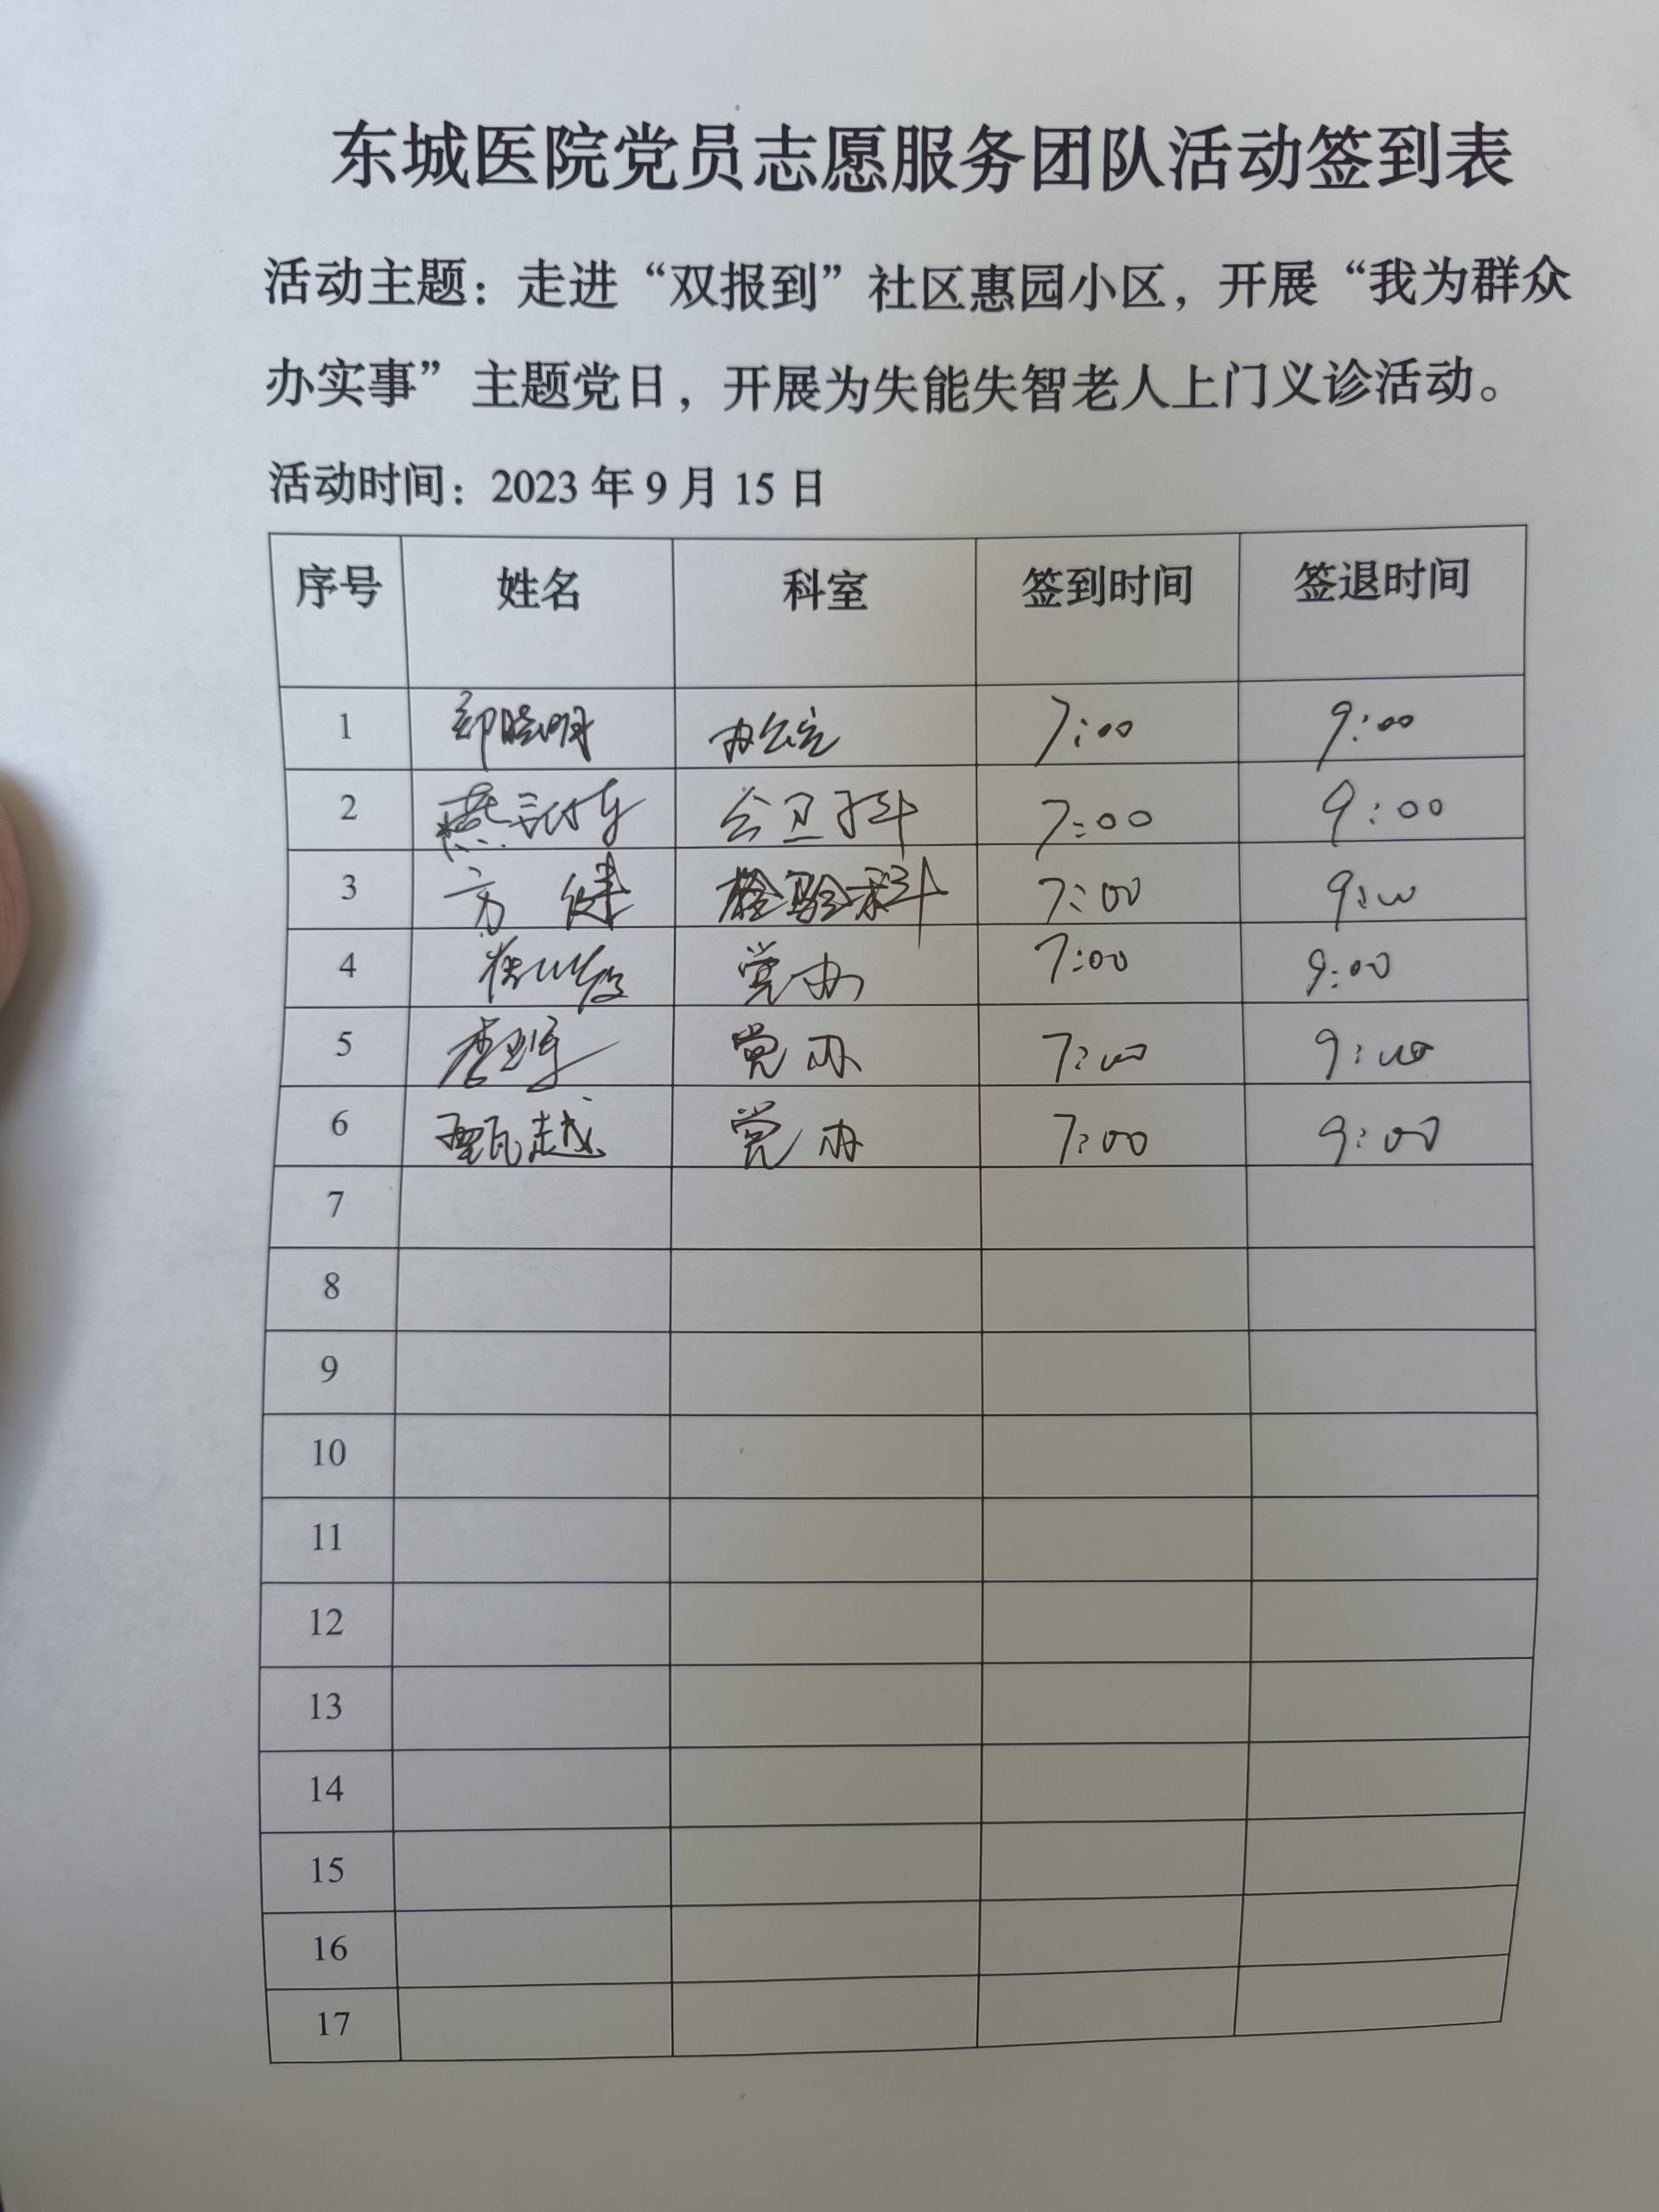 东城医院党员志愿服务团队活动签到表
活动主题：走进“双报到”社区惠园小区，开展“我为群众
办实事”主题党日，开展为失能失智老人上门义诊活动。
活动时间：2023 年 9 月 15 日
序号 姓名 科室 签到时间 签退时间
1 办公室 7:00 9:00
2 公卫科 7:00 9:00
3 方健 检验科 7:00 9:00
4 党办 7:00 9:00
5 党办 7:00 9:00
6 甄越 党办 7:00 9:00
7
8
9
10
11
12
13
14
15
16
17